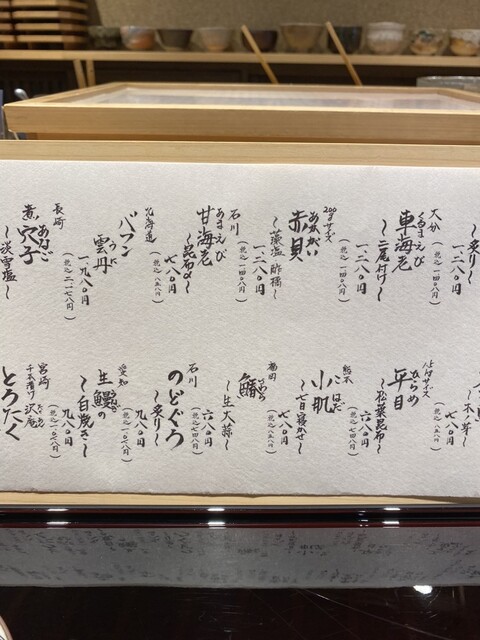 〜炙り〜
一、二八〇円
大分
くるまえび
車海老
〜二尾付け〜
一、二八〇円
(税込一四〇八円)
200gサイズ
あかがい
赤貝
〜藻塩 酢橘〜
一、二八〇円
(税込一四〇八円)
石川
あまえび
甘海老
〜昆布〆〜
七八〇円
(税込八五八円)
北海道
バフン
うに
雲丹
一、九八〇円
(税込二一七八円)
長崎
あなご
煮穴子
〜淡雪塩〜
〜木ノ芽〜
七八〇円
(税込八五八円)
ひらめ
平目
〜松葉昆布〜
六八〇円
(税込七四八円)
熊本
こはだ
小肌
〜七日寝かせ〜
七八〇円
(税込八五八円)
福岡
さわら
鰆
〜生大蒜〜
六八〇円
(税込七四八円)
石川
のどぐろ
〜炙り〜
九八〇円
(税込一〇七八円)
愛知
生鰻の
〜白焼き〜
九八〇円
(税込一〇七八円)
宮崎
千本漬け沢庵
とろたく